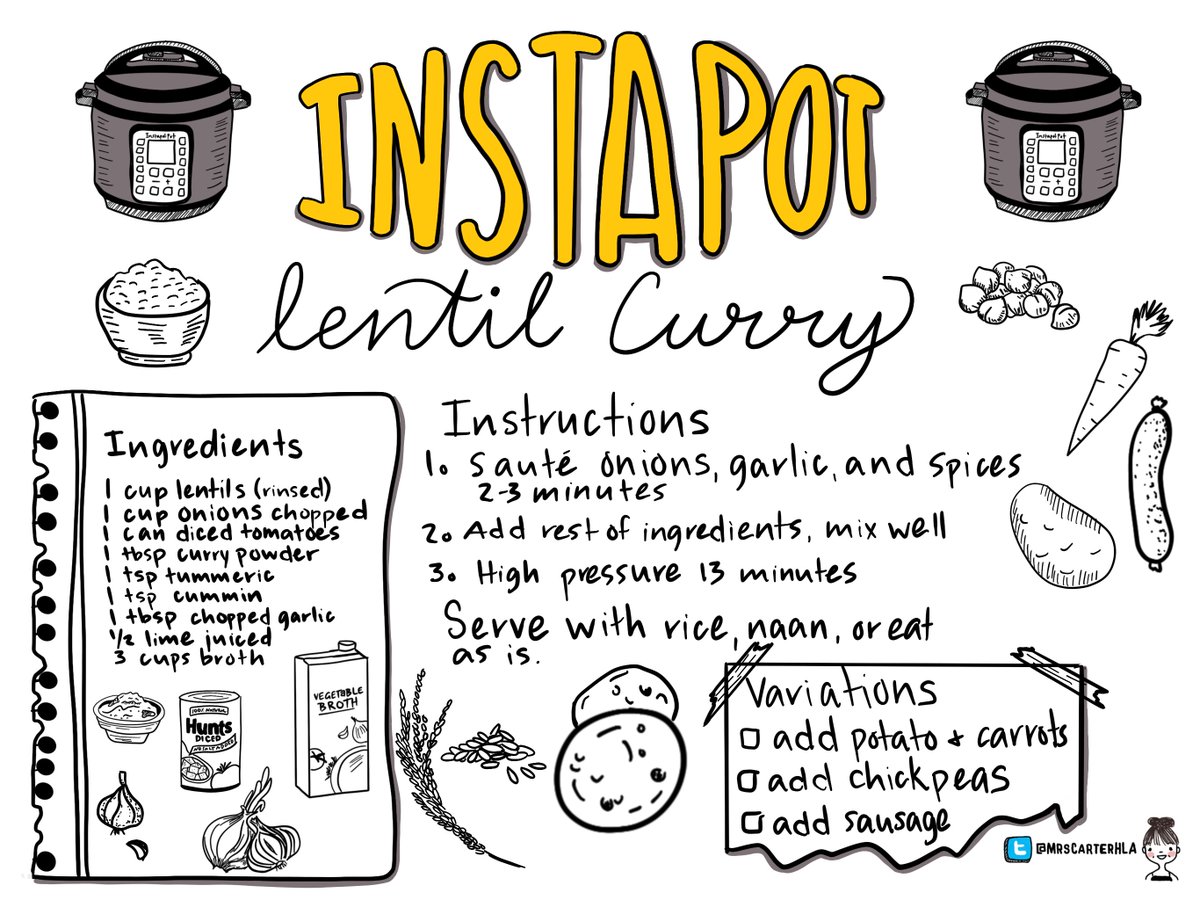 INSTAPOT
lentil Curry
Instapot Pot
Instapot Pot
Ingredients
1 cup lentils (rinsed)
1 cup onions chopped
1 can diced tomatoes
1 tbsp curry powder
1 tsp tummeric
1 tsp cummin
1 tbsp chopped garlic
1/2 lime juiced
3 cups broth
100% NATURAL
Hunts
DICED
TOMATOES
VEGETABLE
BROTH
Instructions
1. Sauté onions, garlic, and spices
2-3 minutes
2. Add rest of ingredients, mix well
3. High pressure 13 minutes
Serve with rice, naan, or eat
as is.
Variations
add potato & carrots
add chickpeas
add sausage
@MRSCARTERHLA